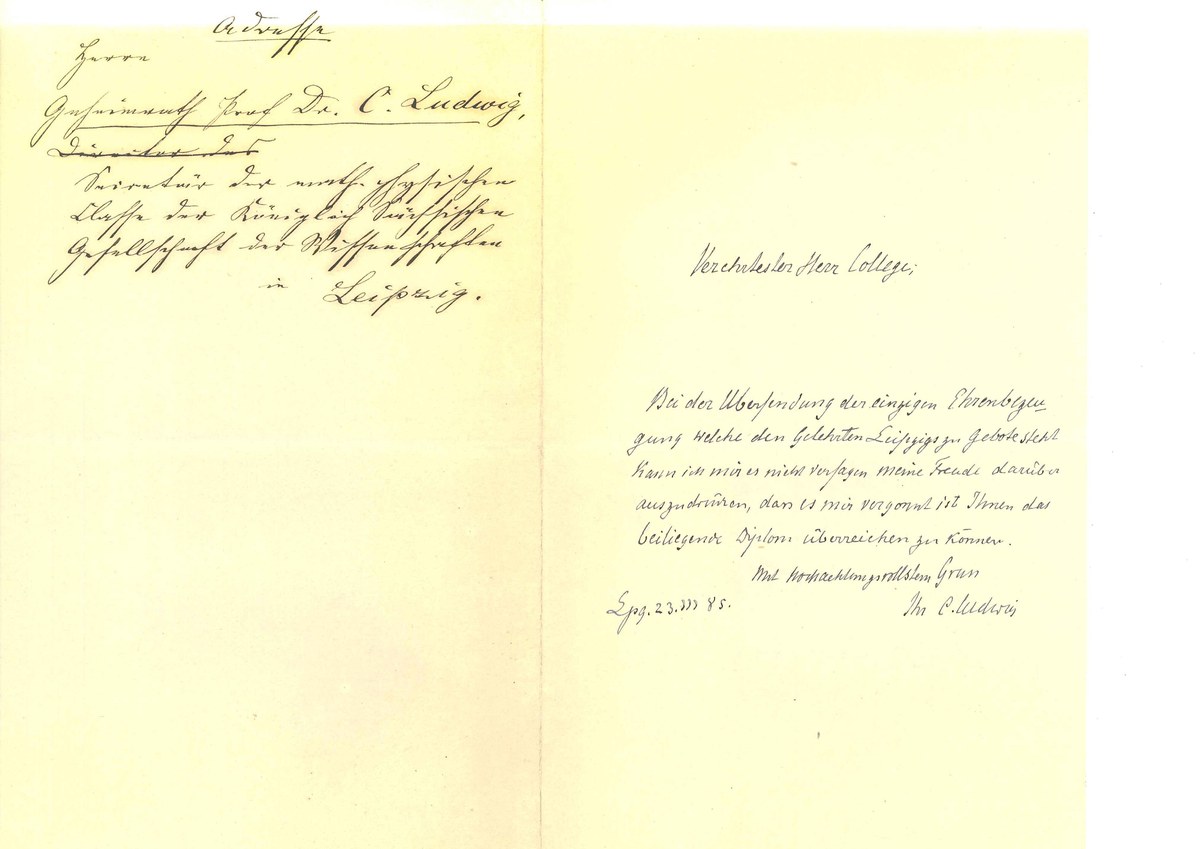 Adresse
Herrn
Geheimrath Prof Dr. C. Ludwig,
Director des
Secretär der math. physischen
Classe der Königlich Sächsischen
Gesellschaft der Wissenschaften
in Leipzig.
Verehrtester Herr College;
Bei der Übersendung der einzigen Ehrenbezeu
gung welche den Gelehrten Leipzigs zu Gebote steht
kann ich mir es nicht versagen meine Freude darüber
auszudrücken, dass es mir vergönnt ist Ihnen das
beiliegende Diplom überreichen zu können.
Mit hochachtungsvollstem Gruss
Lpg. 23. III 85.
Ihr C. Ludwig